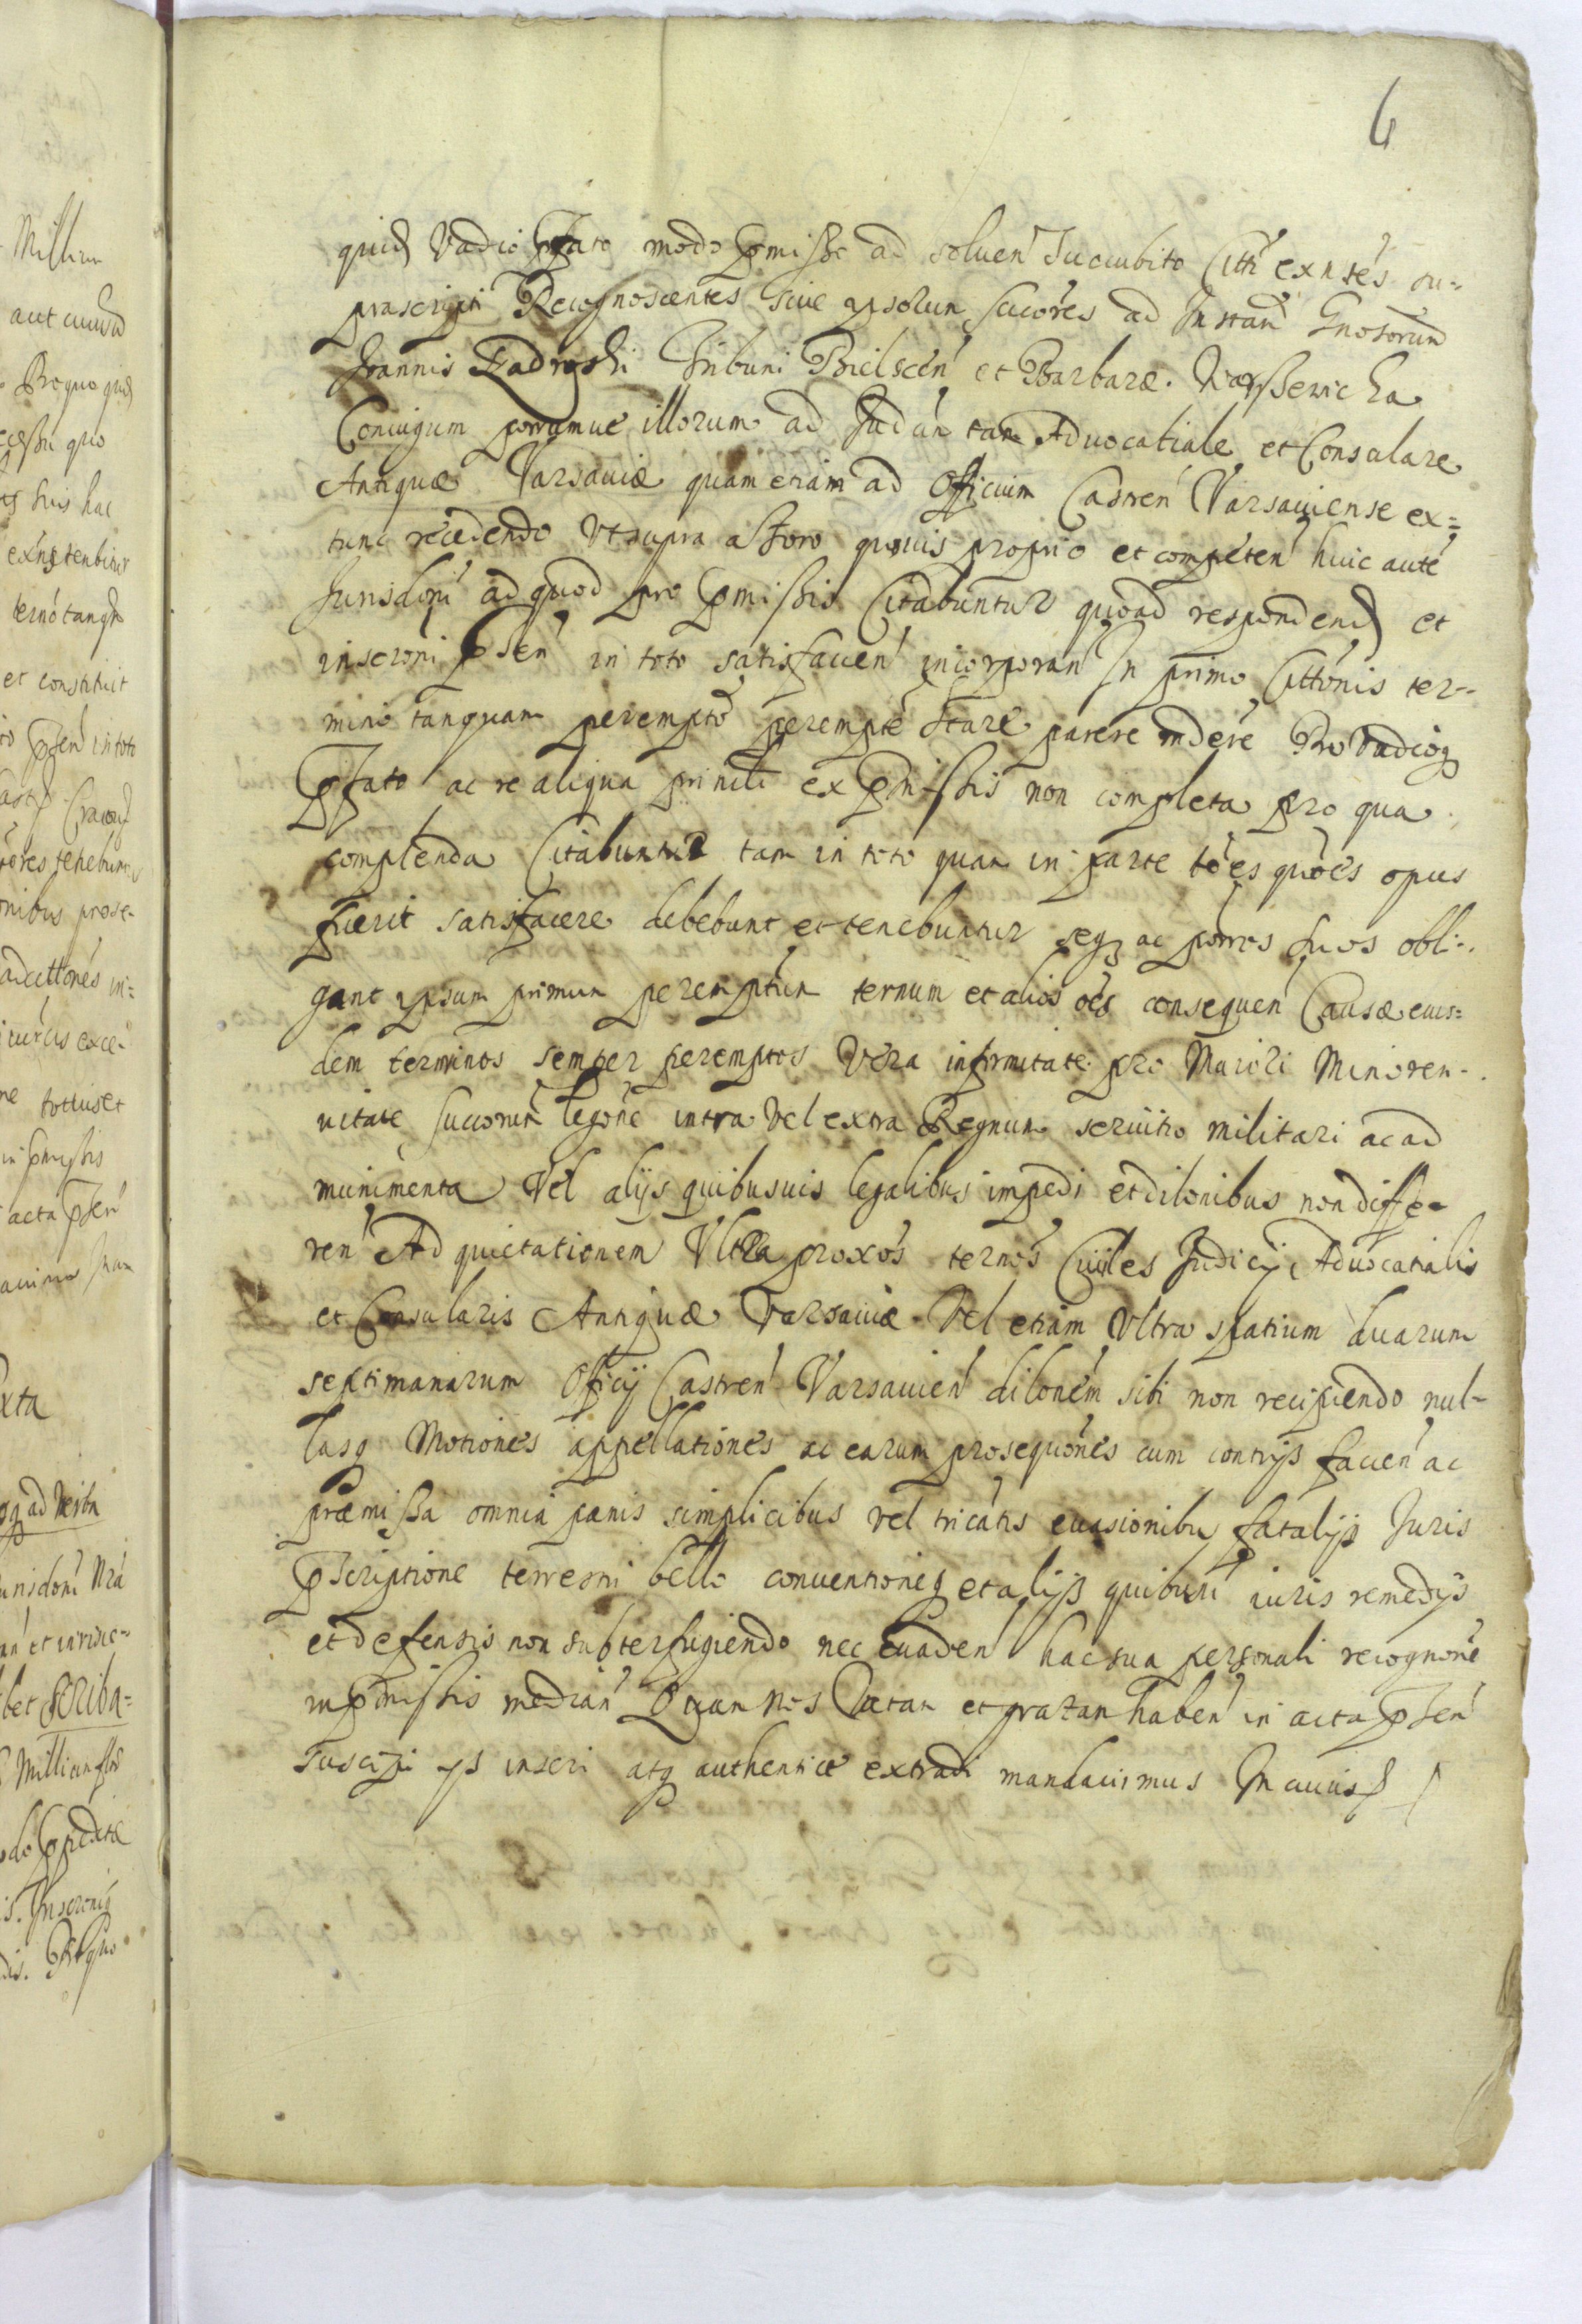 6
quid Vadio pfato modo pmisso ad soluen Succubito Citti exntes su=
prascripti Recognoscentes siue ipsorum succores ad Instam Gnosorum
Joannis Tribuni Bielscen et Barbaræ
Coniugum porrumue illorum ad Judun tam Aduocatiale et Consulare
Antiquæ Varsauiæ quam etiam ad Officium Castren Varsauiense ex=
tunc recedendo Vt supra a Foro quouis proprio et competen huic aute
Jurisdoni ad quod pro pmissis Citabuntur quoad respondend et
inscroni psen in toto satisfacien incorporan In primo Cittonis ter-
mino tanquam perempto perempte stare parere Pro Vadioq
pfato ac re aliqua prinili ex pmissis non completa pro qua
complenda Citabuntur tam in toto quam in parte toes quoes opus
fuerit satisfacere debebunt et tenebuntur seq ac porros suos obli-
gant ipsum primum peremptum ternum et alios oes consequen Causæ eius=
dem terminos semper peremptos Vera infirmitate pro Maiori Minoren-
nitate succorum legone intra Vel extra Regnum seruitio militari ac ad
munimenta Vel alijs quibusuis legalibus impedi et dilonibus non diffe-
ren Ad quietationem Vltra proxos ternos Ciuiles Judicij Aduocatialis
et Consularis Antiquæ Varsauiæ Vel etiam Vltra spatium duarum
septimanarum Officij Castren Varsauien dilonem sibi non recipiendo nul-
lasq Motiones appellationes ac earum prosequones cum contrijs facien ac
præmissa omnia pænis simplicibus vel tricatis euasionibus fatalijs Juris
pscriptione terrestri bello conuentioneq et alijs quibusui iuris remedijs
et defensis non subterfugiendo nec euaden hac sua personali recognone
in pmissis median Quam nos Ratam et gratam haben in acta psen
suscipi ijs inscri atq authentice extradi mandauimus In cuius